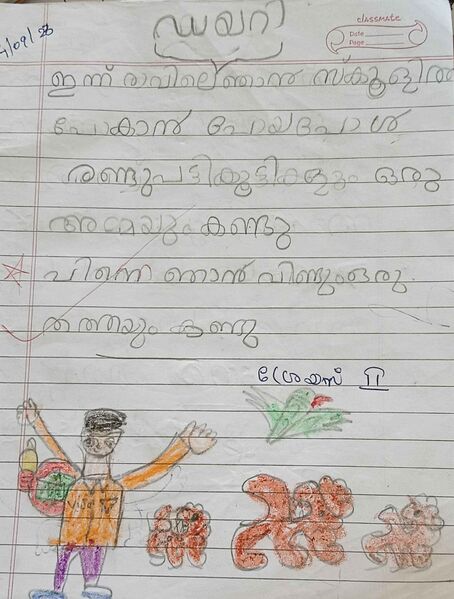 ഡയറി
classmate
Date
Page
ഇന്ന് രാവിലെ ഞാൻ സ്കൂളിൽ
പോകാൻ പോയപ്പോൾ
രണ്ടു പട്ടിക്കുട്ടികളും ഒരു
അമ്മയും കണ്ടു
പിന്നെ ഞാൻ വീണ്ടും ഒരു
തത്തയും കണ്ടു
ശ്രേയസ് II